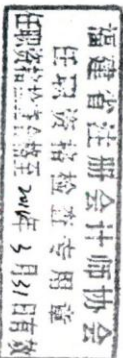 福建省注册会计师协会
任职资格检查专用章
任职资格检查合格至2016年3月31日有效